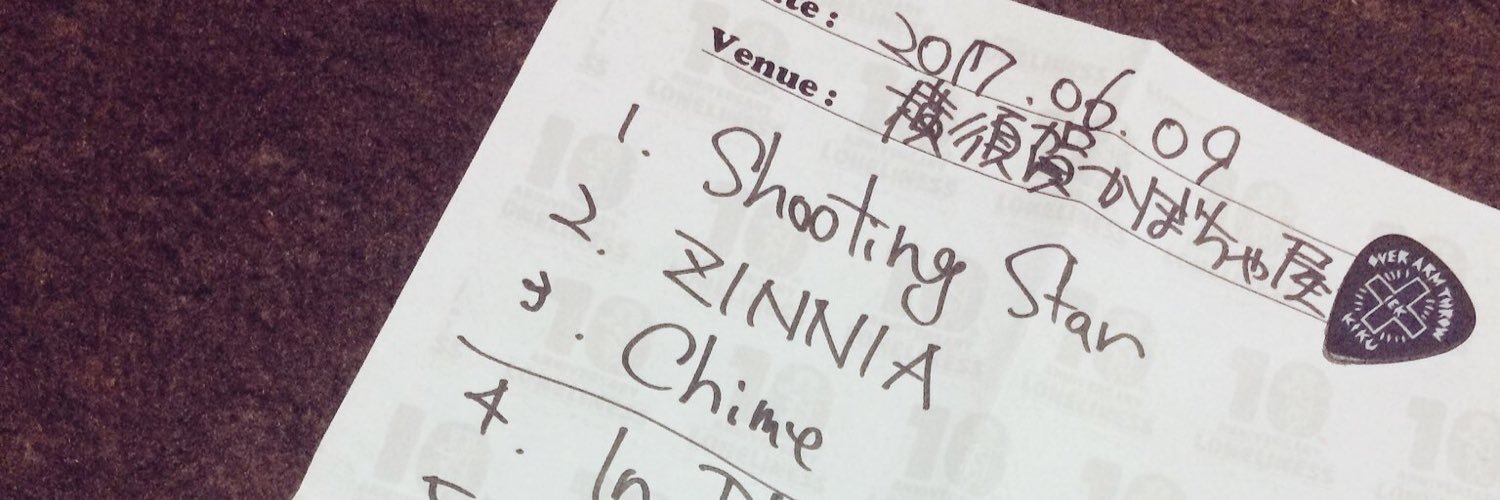 Date: 2017.06.09
Venue: 横須賀かぼちゃ屋
1. Shooting Star
2. ZINNIA
3. Chime
4. In
5
OVER ARM THROW
KIKU